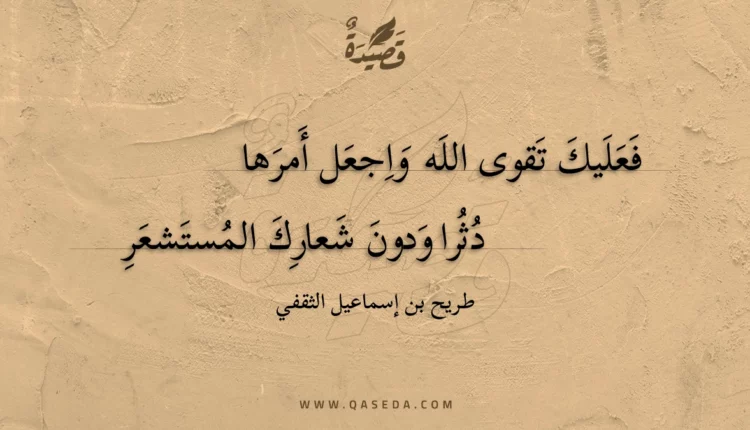 قَصِيْدَةٌ
فَعَلَيكَ تَقوى اللَه وَاِجعَل أَمرَها
دُثُرا وَدونَ شَعارِكَ المُستَشعَرِ
طريح بن إسماعيل الثقفي
WWW.QASEDA.COM